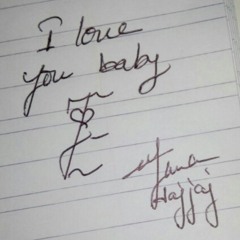 I love
you baby
Hajjaj